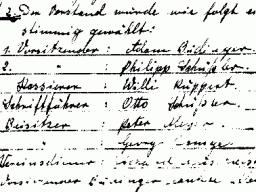 2. Der Vorstand wurde wie folgt ein
stimmig gewählt:
1. Vorsitzender: Adam Büdinger.
2. " : Philipp Schüßler.
Kassierer : Willi Ruppert
Schriftführer : Otto Schüßler
Beisitzer : Peter
" : Georg
Vereinsdiener :
Vorsitzender Büdinger